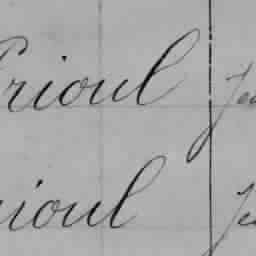 Prioul Jea
rioul Jea